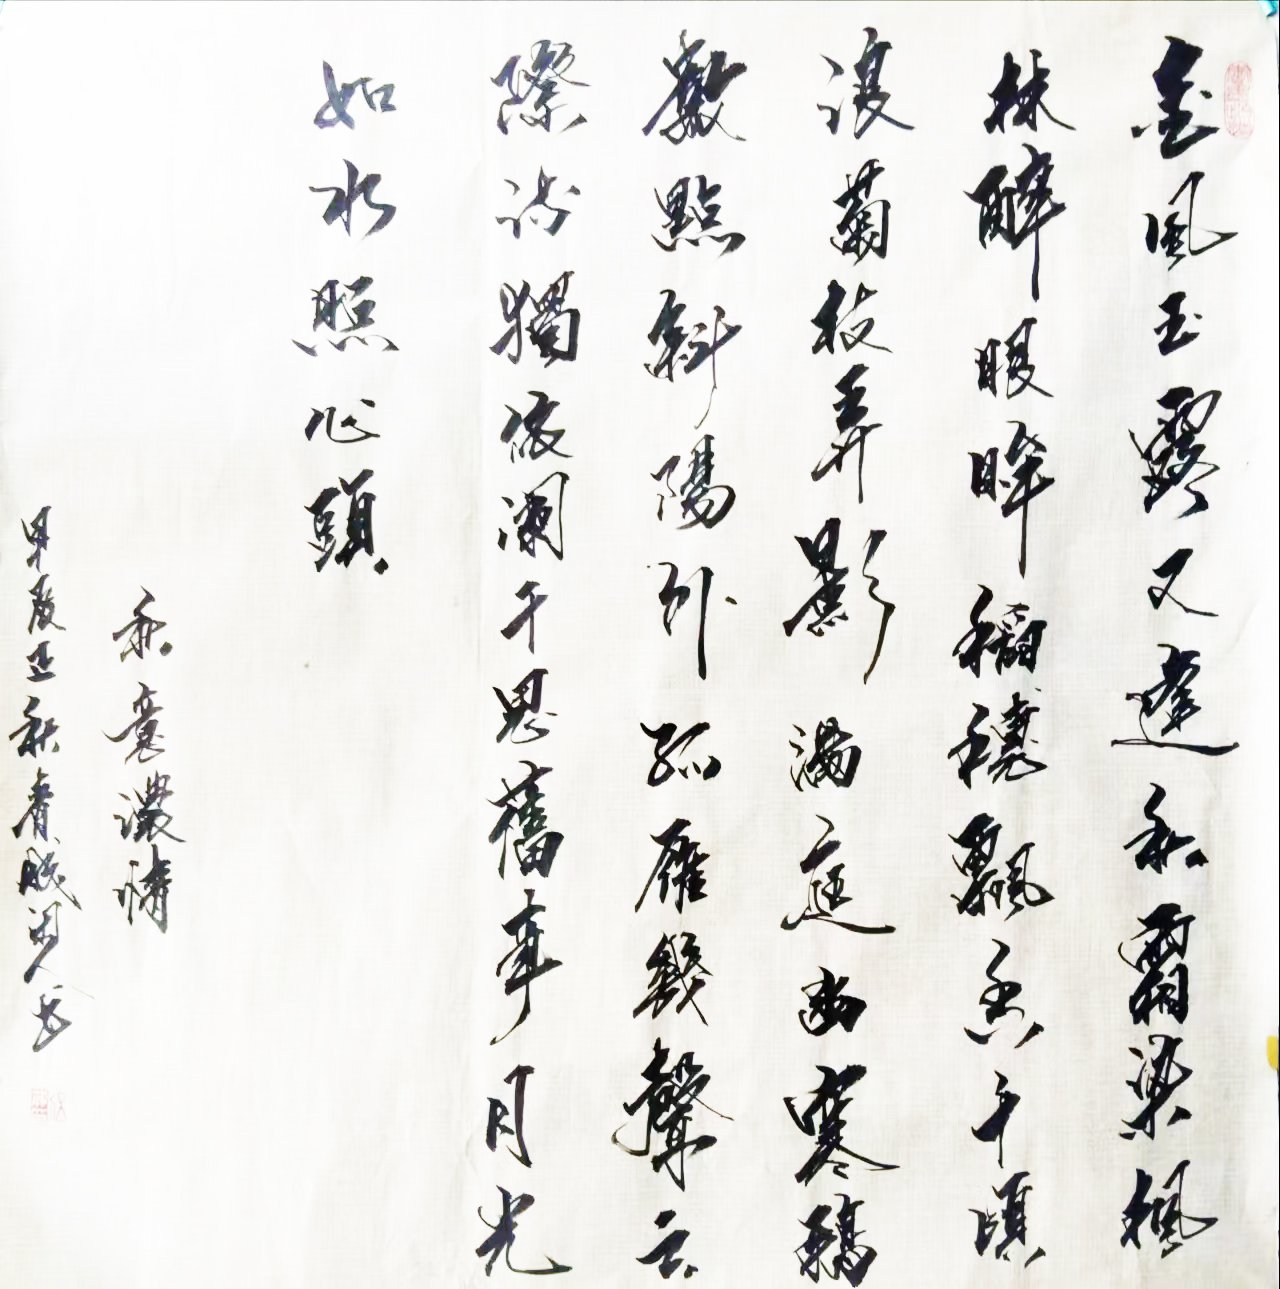 金風玉露又逢秋霜染楓
林醉眼眸稻穗飄香千頃
浪菊枝弄影滿庭幽寒鴉
數點斜陽外孤雁幾聲云
際流獨依闌干思舊事月光
如水照心頭
秋意濃情
甲辰正秋春城闲人书